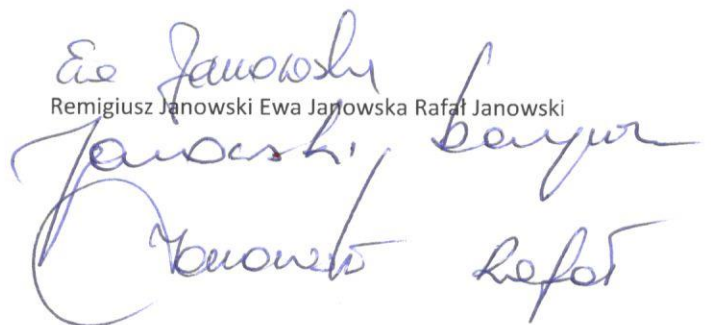 Ewa Janowska
Remigiusz Janowski Ewa Janowska Rafał Janowski
Janowski
Janowski Rafał